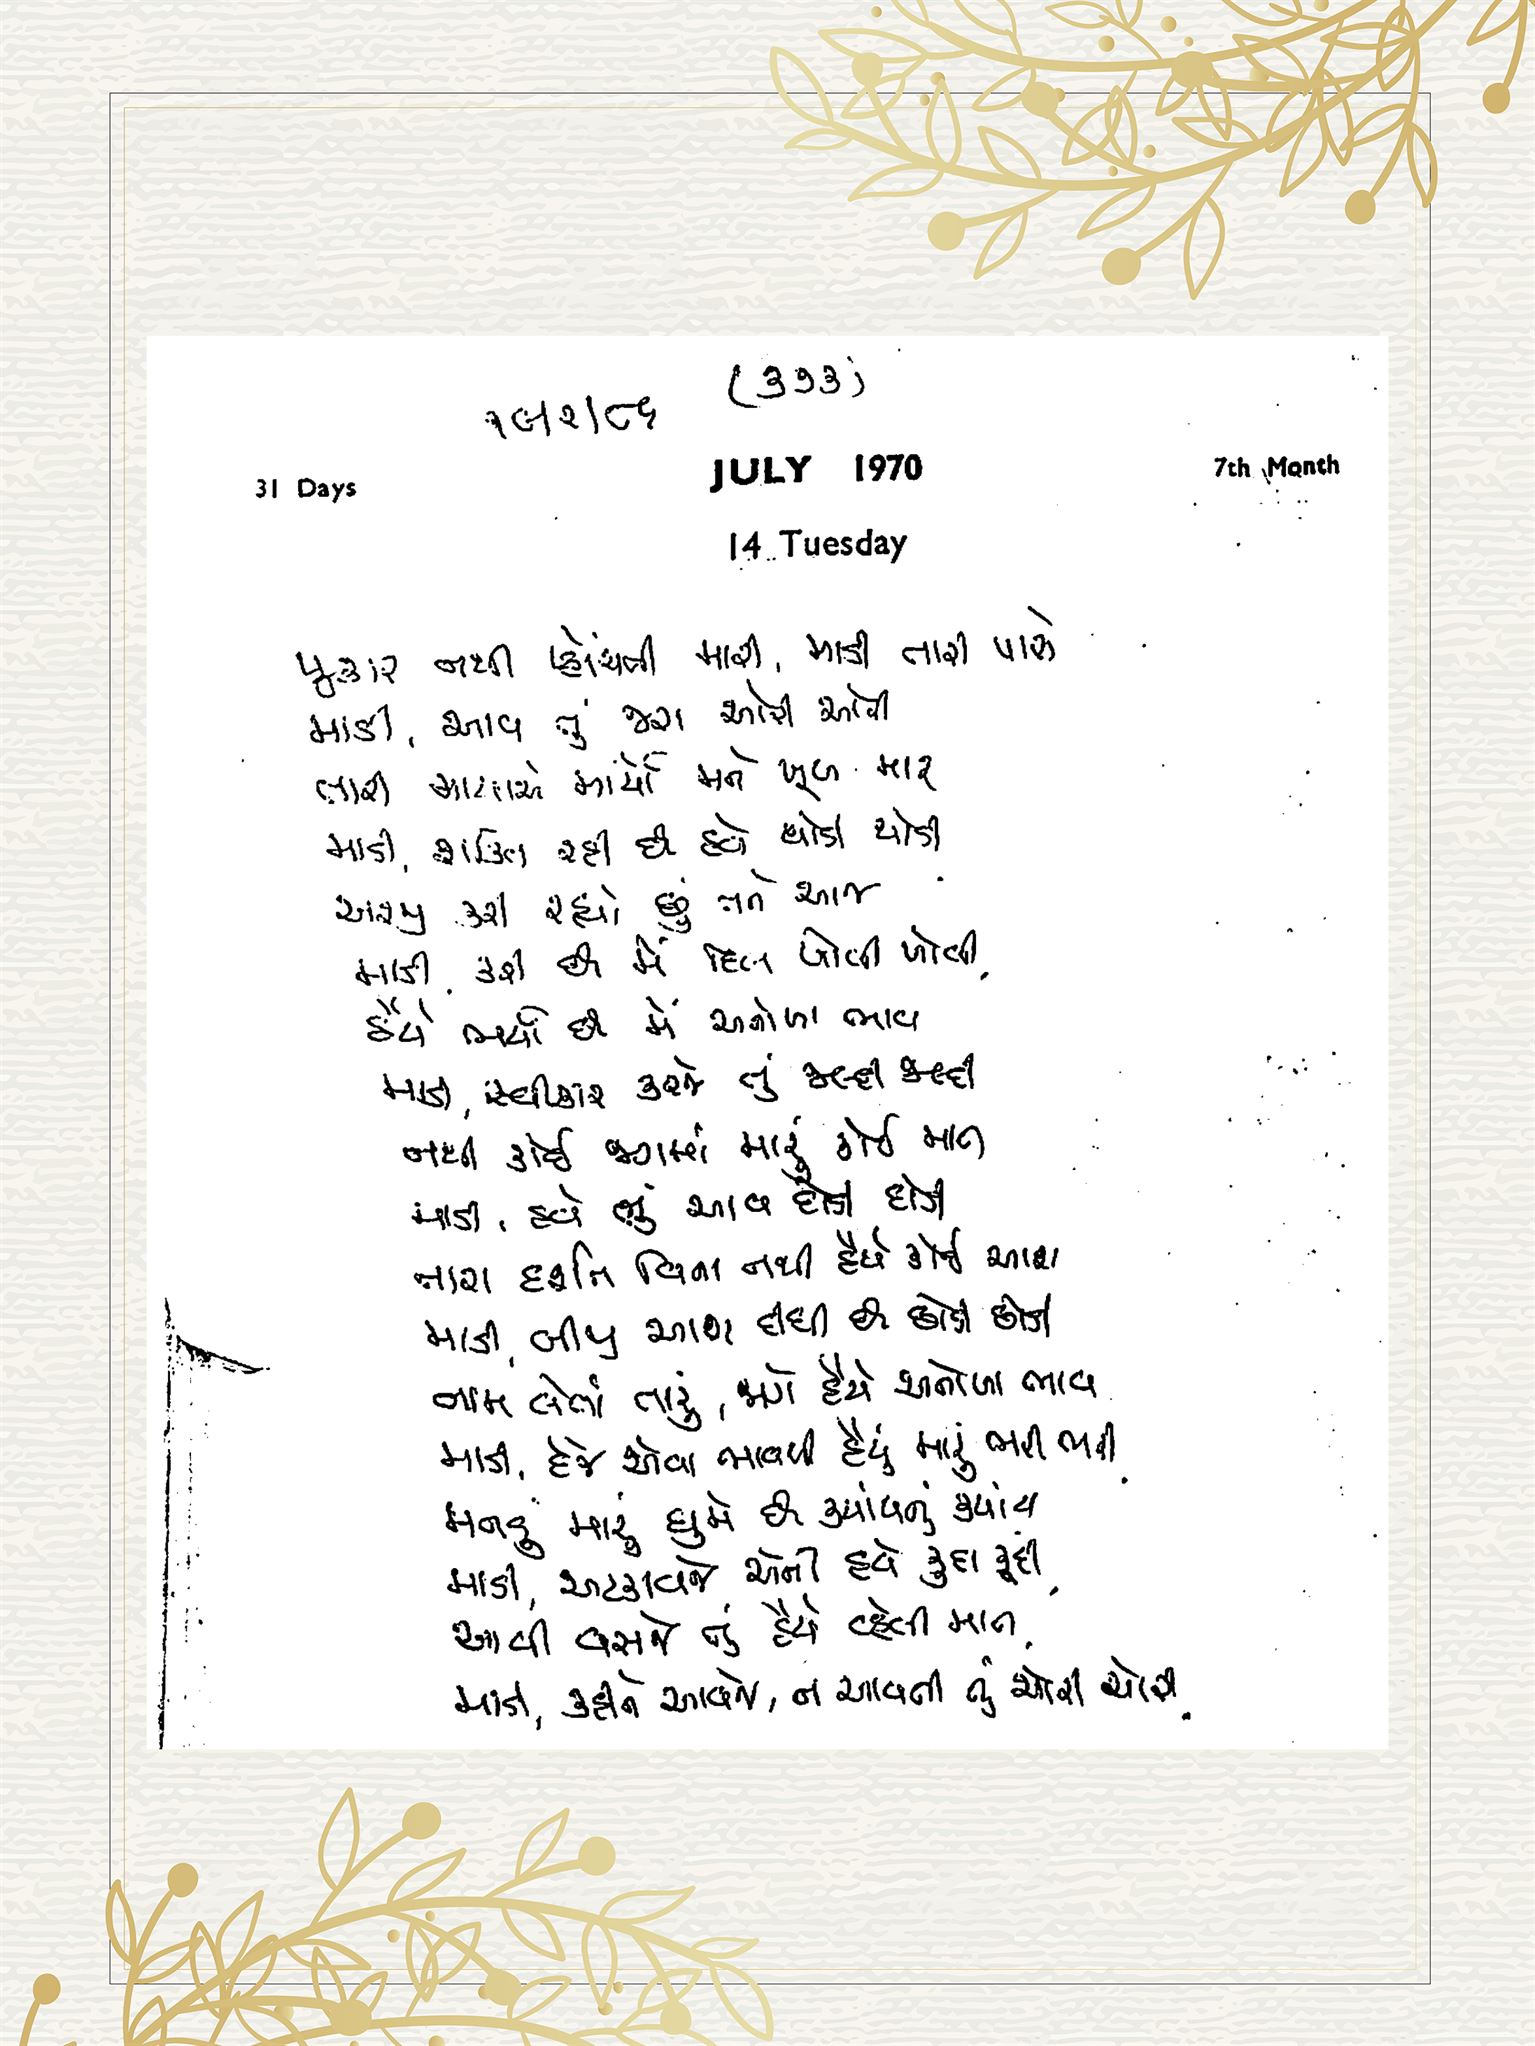 (૩૭૩)
૧૯/૨/૮૬
31 Days JULY 1970 7th Month
14 Tuesday
પુકાર નથી પ્હોંચતી મારી, માડી તારી પાસે
માડી, આવ તું જરા ઓરી ઓરી
તારી માયાએ માર્યો મને ખૂબ માર
માડી, શક્તિ રહી છે હવે થોડી થોડી
અરજ કરી રહ્યો છું તને આજ
માડી, કરી છે મેં દિલ ખોલી ખોલી.
હૈયે ભર્યો છે મેં અનોખા ભાવ
માડી, સ્વીકાર કરજે તું જલ્દી જલ્દી
નથી કોઈ જગમાં મારું કોઈ માત
માડી, હવે તું આવ દોડી દોડી
તારા દર્શન વિના નથી હૈયે કોઈ આશ
માડી, બીજી આશ દીધી છે છોડી છોડી
નામ લેતાં તારું, જાગે હૈયે અનોખા ભાવ
માડી, દેજે એવા ભાવથી હૈયું મારું ભરી ભરી.
મનડું મારું ઘુમે છે ક્યાંયનું ક્યાંય
માડી, અટકાવજે એની હવે કુદા કૂદી.
આવી વસજે તું હૈયે વ્હેલી માત,
માડી, કહીને આવજે, ન આવતી તું ચોરી ચોરી.